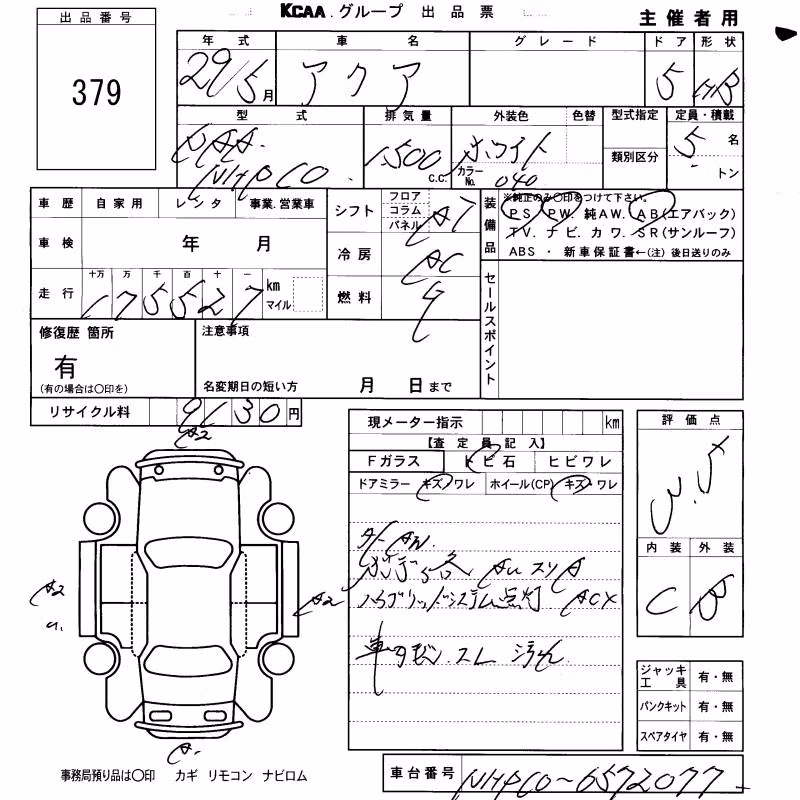 KCAA.グループ 出品票
主催者用
出品番号
379
年式 車名 グレード ドア 形状
29/5月 アクア 5 HB
型式 排気量 外装色 色替 型式指定 定員・積載
DAA 1,500 c.c. ホワイト 5名
NHP10 カラーNo. 040 類別区分 トン
車歴 自家用 レンタ 事業.営業車
車検 年 月
十万 万 千 百 十 一
走行 175527 km マイル
シフト フロア コラム パネル AT
冷房 AC
燃料
装備品
※純正のみ〇印をつけて下さい。
PS. PW. 純AW. AB(エアバック)
TV. ナビ. カワ. SR(サンルーフ)
ABS ・ 新車保証書←(注) 後日送りのみ
セールスポイント
修復歴 箇所
有
(有の場合は〇印を)
注意事項
名変期日の短い方 月 日まで
リサイクル料 9130円
現メーター指示 km
【査定員記入】
Fガラス トビ石 ヒビワレ
ドアミラー キズ/ワレ ホイール(CP) キズ・ワレ
ハイブリッドシステム点灯 ACX
車内 スレ 汚れ
A2
A2
A2
評価点
3.5
内装 外装
C B
ジャッキ工具 有・無
パンクキット 有・無
スペアタイヤ 有・無
事務局預り品は〇印 カギ リモコン ナビロム
車台番号 NHP10-6572077